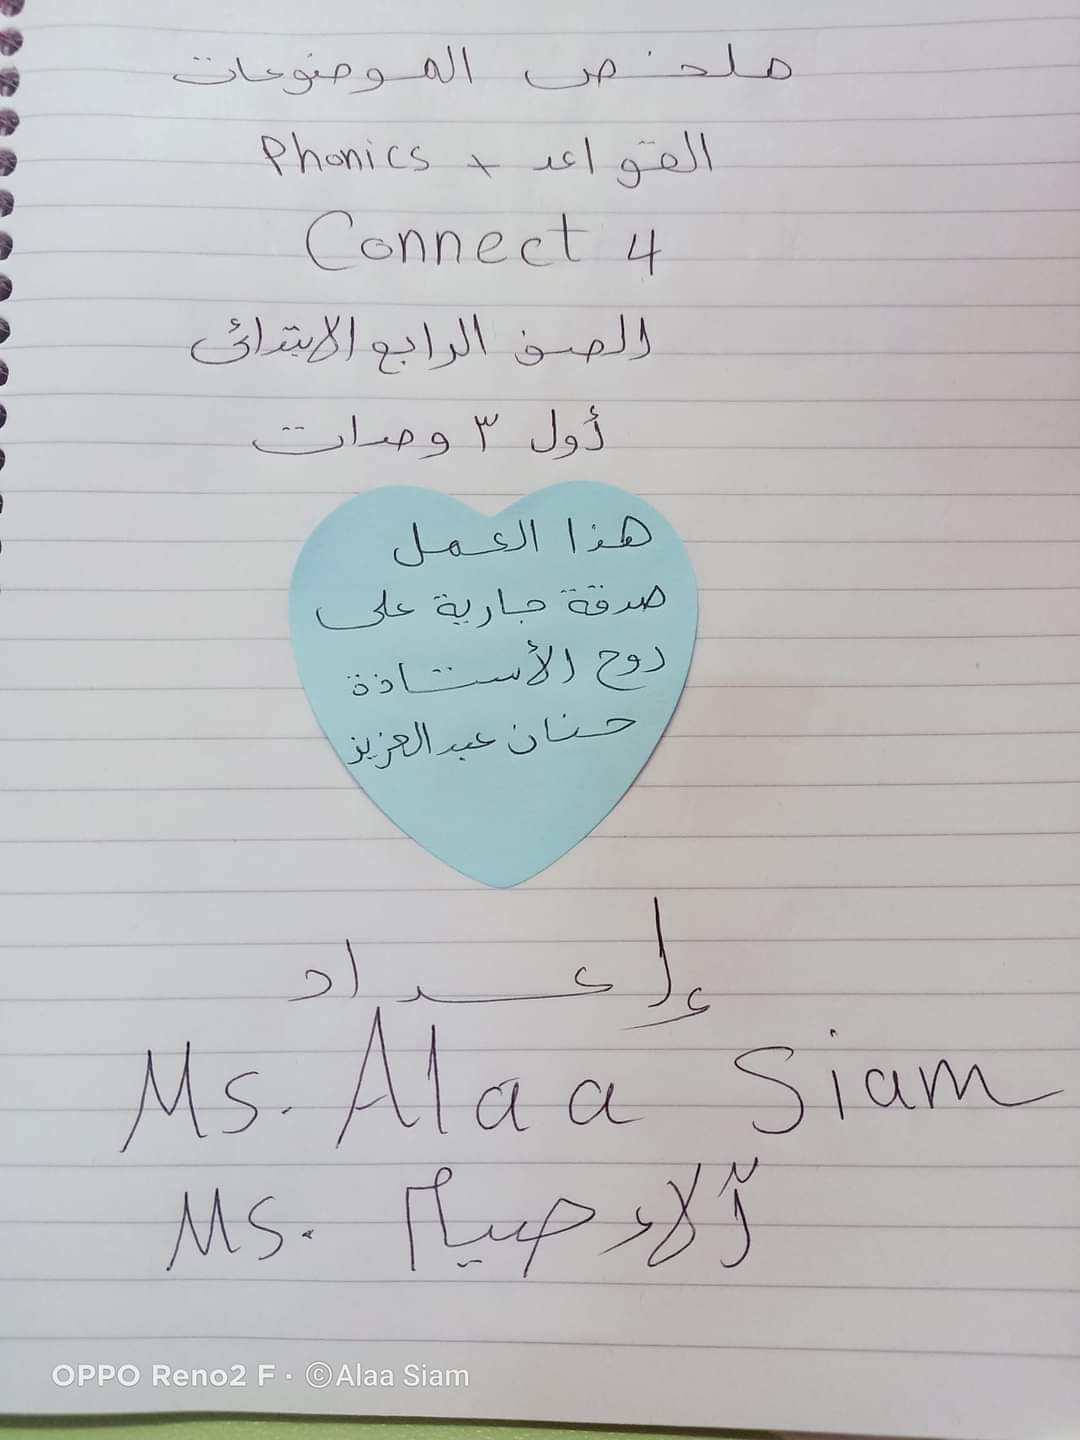 ملخص الموضوعات
القواعد + Phonics
Connect 4
الصف الرابع الابتدائى
أول ٣ وحدات
هذا العمل
صدقة جارية على
روح الأستاذة
حنان عبدالعزيز
إعداد
Ms. Alaa Siam
Ms. آلاء صيام
OPPO Reno2 F · ©Alaa Siam